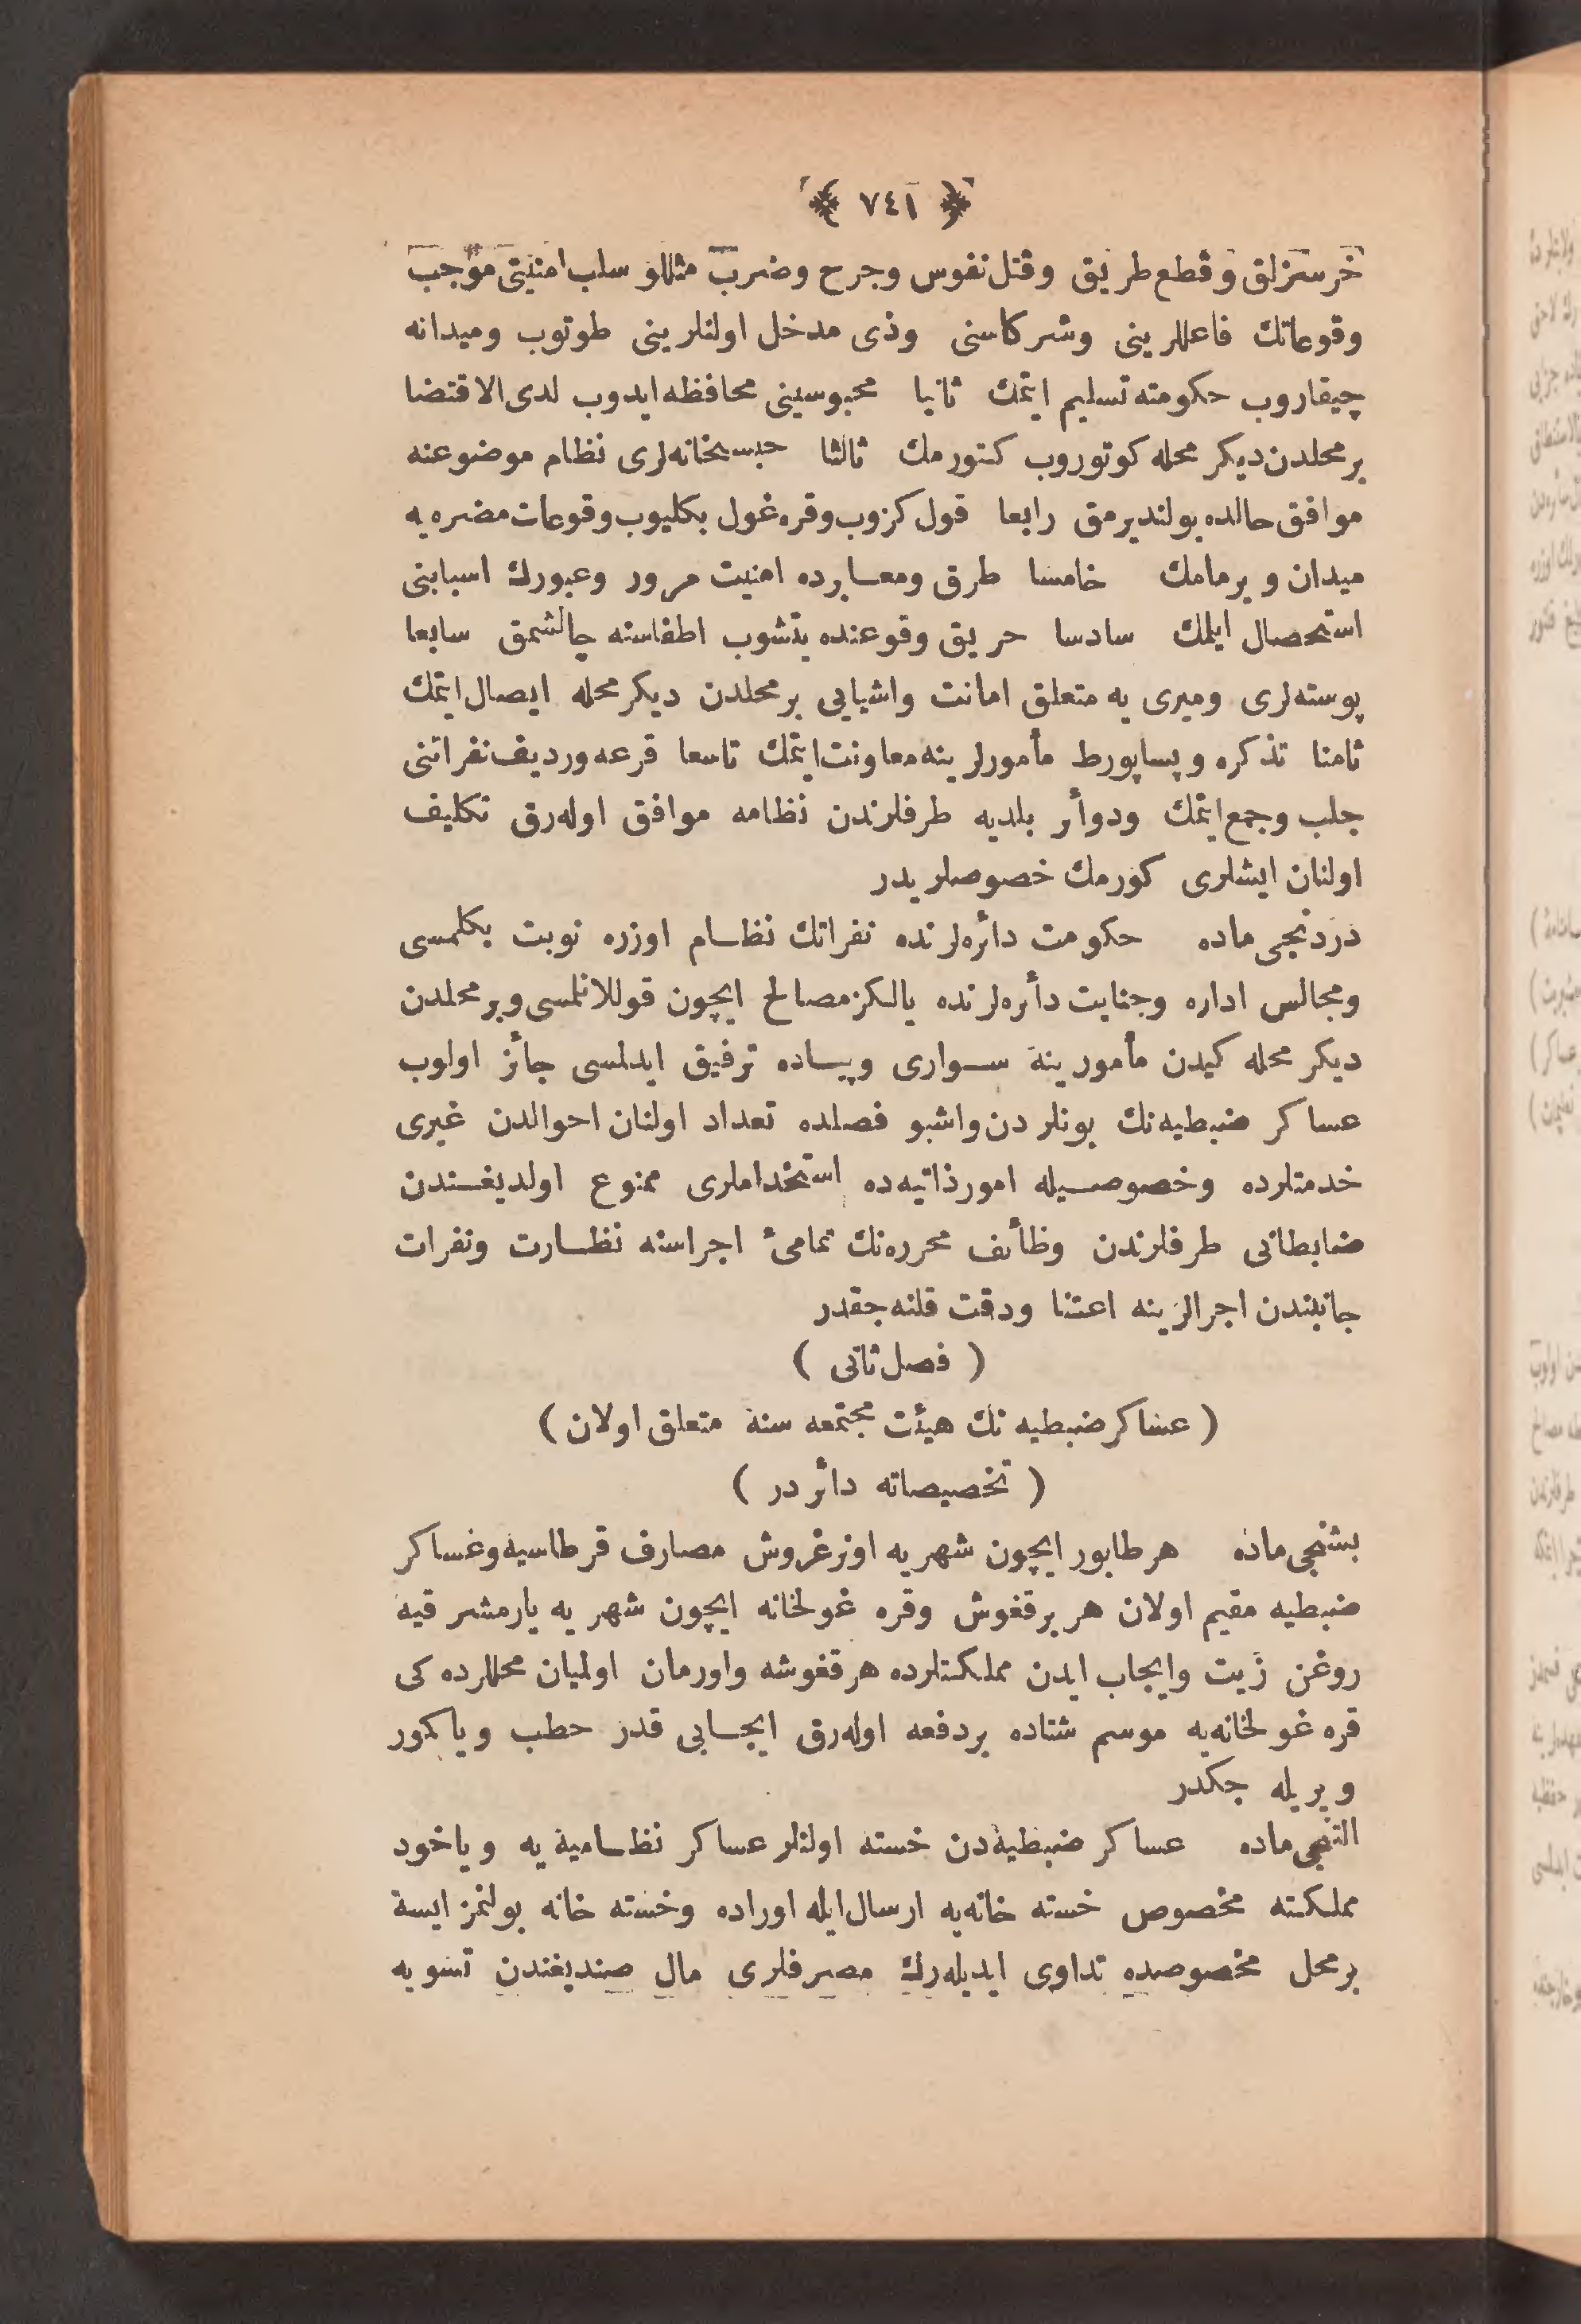 ﴿ ٧٤١ ﴾
خرسزلق وقطع طريق وقتل نفوس وجرح وضرب مثللو سلب امنيتى موجب
وقوعاتك فاعللرينى وشركاسنى وذى مدخل اولنلرينى طوتوب وميدانه
چيقاروب حكومته تسليم ايتمك ثانيا محبوسينى محافظه ايدوب لدى الاقتضا
بر محلدن ديكر محله كوتوروب كتورمك ثالثا حبسخانه‌لرى نظام موضوعنه
موافق حالده بولنديرمق رابعا قول كزوب وقره غول بكليوب وقوعات مضره يه
ميدان ويرمامك خامسا طرق ومعابرده امنيت مرور وعبورك اسبابنى
استحصال ايلمك سادسا حريق وقوعنده يتشوب اطفاسنه چالشمق سابعا
پوسته‌لرى وميرى يه متعلق امانت واشيايى بر محلدن ديكر محله ايصال ايتمك
ثامنا تذكره وپساپورط مأمورلرينه معاونت ايتمك تاسعا قرعه ورديف نفراتنى
جلب وجمع ايتمك ودوائر بلديه طرفلرندن نظامه موافق اوله‌رق تكليف
اولنان ايشلرى كورمك خصوصلريدر
دردنجى ماده حكومت دائره‌لرنده نفراتك نظام اوزره نوبت بكلمسى
ومجالس اداره وجنايت دائره‌لرنده يالكز مصالح ايچون قوللانلمسى وبر محلدن
ديكر محله كيدن مأمورينه سوارى وپياده ترفيق ايدلمسى جائز اولوب
عساكر ضبطيه‌نك بونلردن واشبو فصلده تعداد اولنان احوالدن غيرى
خدمتلرده وخصوصيله امور ذاتيه‌ده استخداملرى ممنوع اولديغندن
ضابطانى طرفلرندن وظائف محرره‌نك تمامئ اجراسنه نظارت ونفرات
جانبندن اجرالرينه اعتنا ودقت قلنه جقدر
( فصل ثانى )
( عساكر ضبطيه نك هيئت مجتمعه سنه متعلق اولان )
( تخصيصاته دائر در )
بشنجى ماده هر طابور ايچون شهريه اونر غروش مصارف قرطاسيه وعساكر
ضبطيه مقيم اولان هر بر قغوش وقره غولخانه ايچون شهر يه يارمشر قيه
روغن زيت وايجاب ايدن مملكتلرده هر قغوشه واورمان اولميان محللرده كى
قره غولخانه‌يه موسم شتاده بر دفعه اوله‌رق ايجابى قدر حطب ويا كمور
ويريله جكدر
التنجى ماده عساكر ضبطيه‌دن خسته اولنلر عساكر نظاميه يه وياخود
مملكته مخصوص خسته خانه‌يه ارسال ايله اوراده وخسته خانه بولنمز ايسه
بر محل مخصوصده تداوى ايديله‌رك مصرفلرى مال صنديغندن تسويه